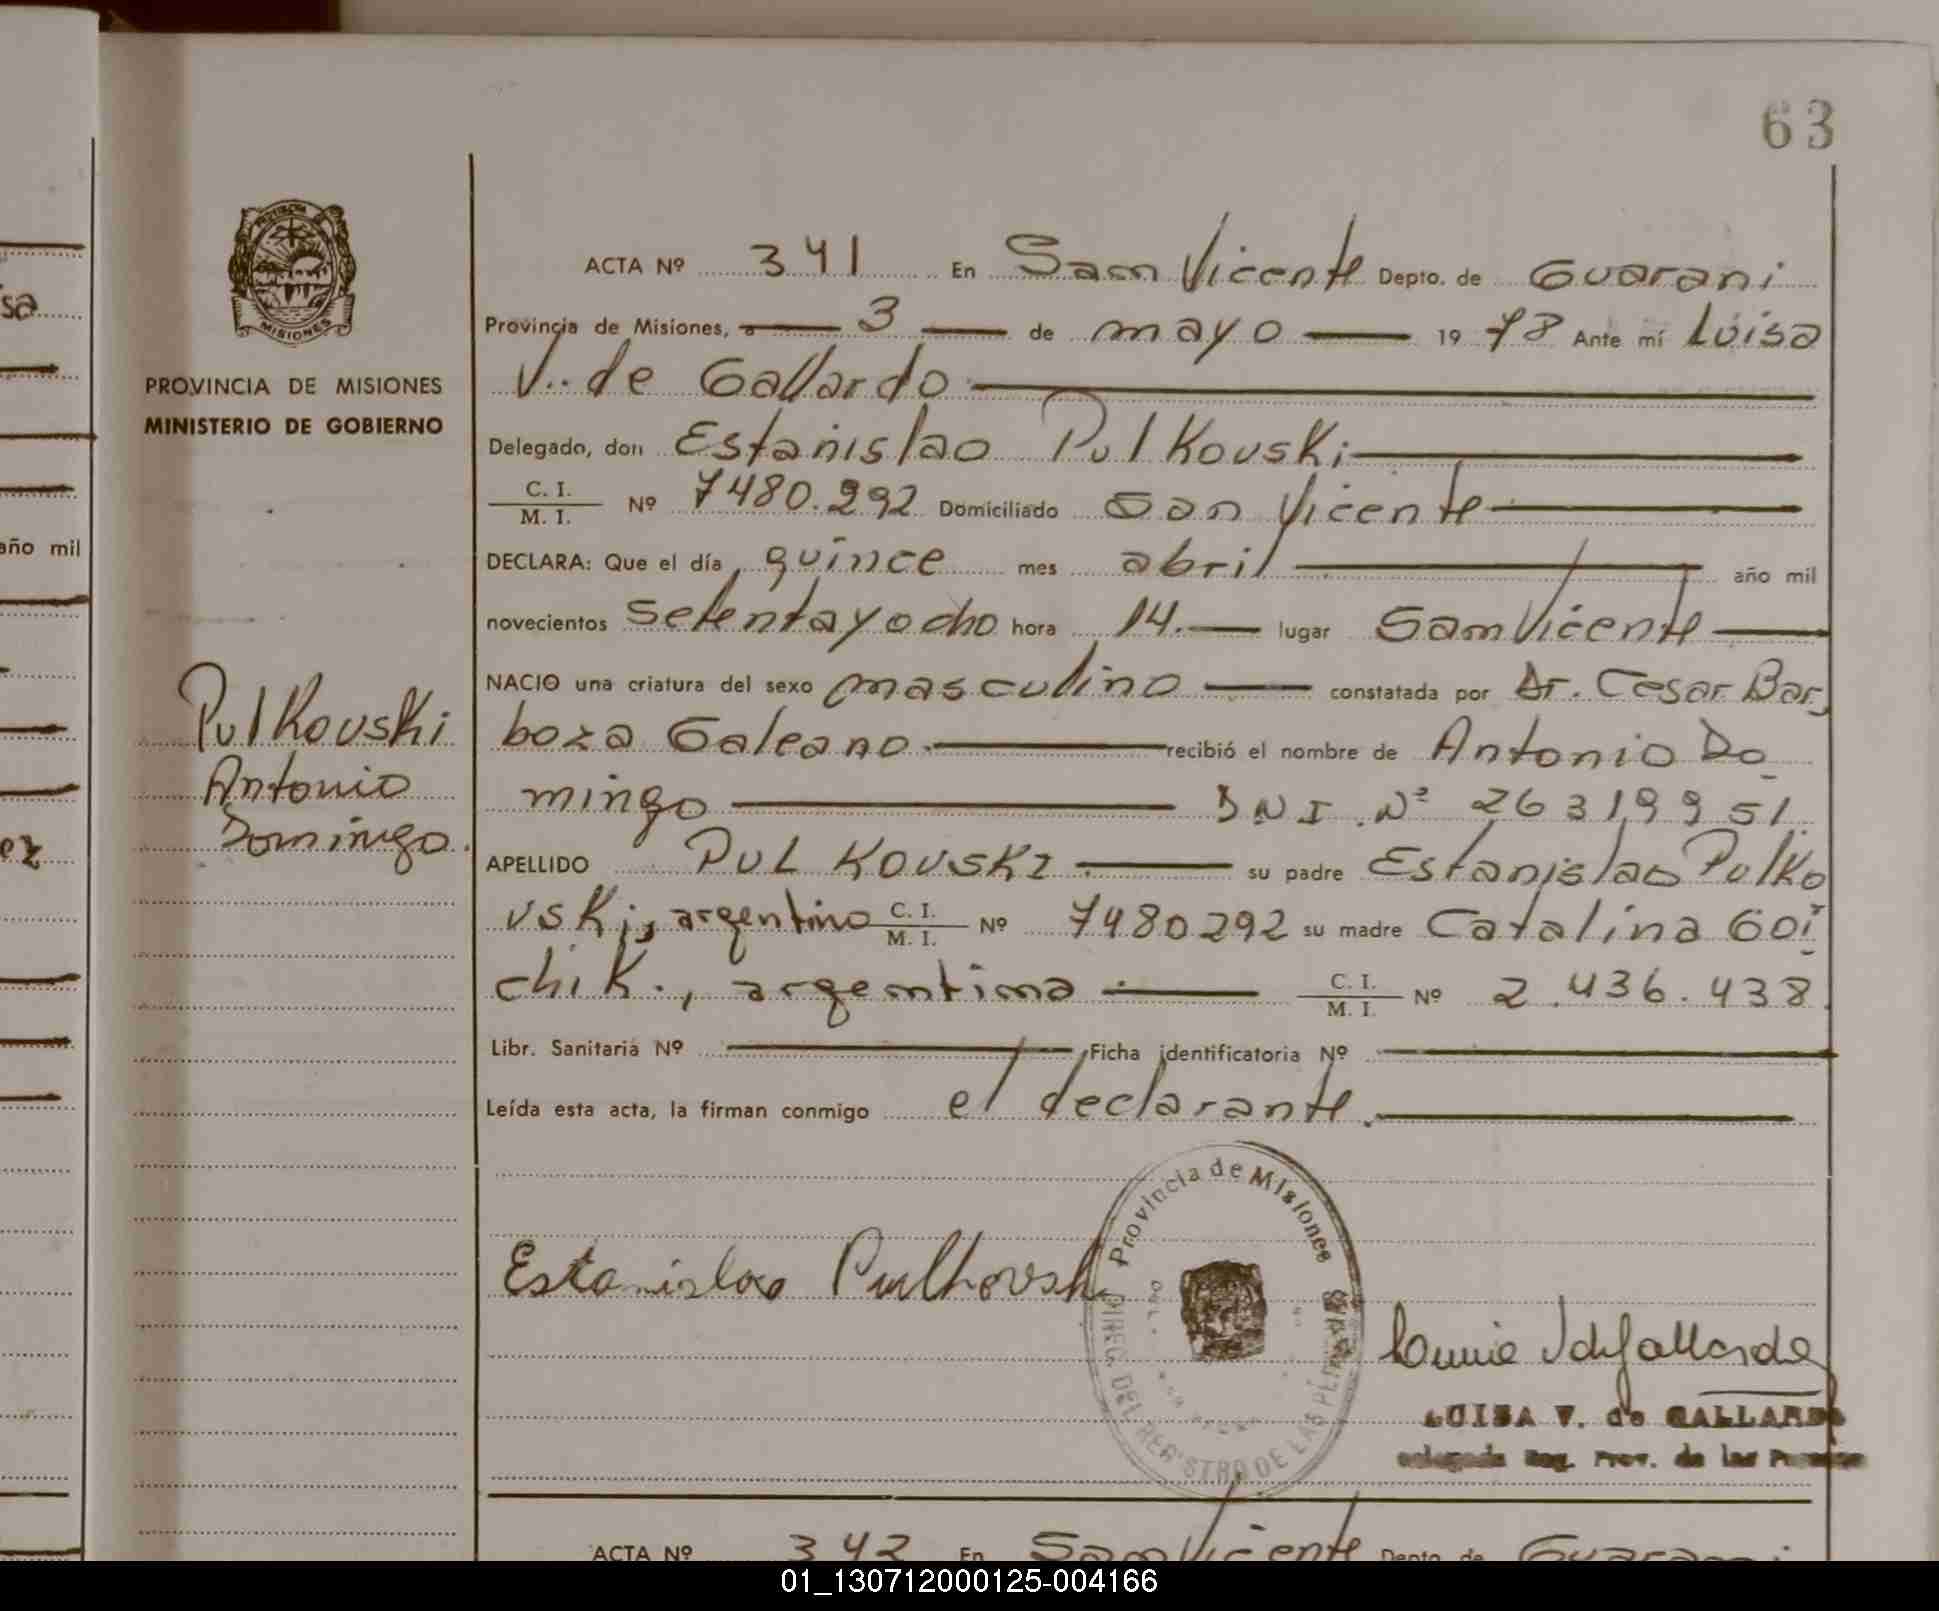 63
ACTA Nº 341 En San Vicente Depto. de Guarani
Provincia de Misiones, a 3 de mayo 1978 Ante mí Luisa
V. de Gallardo
Delegado, don Estanislao Pulkovski
C. I.
M. I. Nº 7480.292 Domiciliado San Vicente
DECLARA: Que el día quince mes abril año mil
novecientos setentayocho hora 14. lugar San Vicente
NACIO una criatura del sexo masculino constatada por Dr. Cesar Bar
boza Galeano recibió el nombre de Antonio Do
mingo DNI Nº 26319951
APELLIDO PULKOVSKI su padre Estanislao Pulko
vski, argentino C. I. M. I. Nº 7480292 su madre Catalina Goi
chik., argentina C. I. M. I. Nº 2.436.438
Libr. Sanitaria Nº Ficha identificatoria Nº
Leída esta acta, la firman conmigo el declarante.
PROVINCIA
MISIONES
PROVINCIA DE MISIONES
MINISTERIO DE GOBIERNO
Pulkovski
Antonio
Domingo.
Estanislao Pulkovski
Provincia de Misiones
DIREC. DEL REGISTRO DE LAS PERS
LUISA V. de GALLARDO
Delegada Reg. Prov. de las Personas
ACTA Nº 342 En San Vicente Depto. de Guarani
sa
año mil
ez
01_130712000125-004166